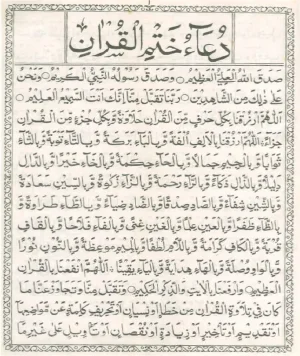 دُعَآءُ خَتْمِ الْقُرْاٰنِ
صَدَقَ اللّٰهُ الْعَلِيُّ الْعَظِيْمُ وَصَدَقَ رَسُوْلُهُ النَّبِيُّ الْكَرِيْمُ وَنَحْنُ
عَلٰى ذٰلِكَ مِنَ الشَّاهِدِيْنَ رَبَّنَا تَقَبَّلْ مِنَّا اِنَّكَ اَنْتَ السَّمِيْعُ الْعَلِيْمُ
اَللّٰهُمَّ ارْزُقْنَا بِكُلِّ حَرْفٍ مِّنَ الْقُرْاٰنِ حَلَاوَةً وَّبِكُلِّ جُزْءٍ مِّنَ الْقُرْاٰنِ
جَزَآءً اَللّٰهُمَّ ارْزُقْنَا بِالْاَلِفِ اُلْفَةً وَّبِالْبَآءِ بَرَكَةً وَّبِالتَّآءِ تَوْبَةً وَّبِالثَّآءِ
ثَوَابًا وَّبِالْجِيْمِ جَمَالًا وَّبِالْحَآءِ حِكْمَةً وَّبِالْخَآءِ خَيْرًا وَّبِالدَّالِ
دَلِيْلًا وَّبِالذَّالِ ذَكَآءً وَّبِالرَّآءِ رَحْمَةً وَّبِالزَّآءِ زَكٰوةً وَّبِالسِّيْنِ سَعَادَةً
وَّبِالشِّيْنِ شِفَآءً وَّبِالصَّادِ صِدْقًا وَّبِالضَّادِ ضِيَآءً وَّبِالطَّآءِ طَرَاوَةً وَّ
بِالظَّآءِ ظَفَرًا وَّبِالْعَيْنِ عِلْمًا وَّبِالْغَيْنِ غِنًى وَّبِالْفَآءِ فَلَاحًا وَّبِالْقَافِ
قُرْبَةً وَّبِالْكَافِ كَرَامَةً وَّبِاللَّامِ لُطْفًا وَّبِالْمِيْمِ مَوْعِظَةً وَّبِالنُّوْنِ نُوْرًا
وَّبِالْوَاوِ وُصْلَةً وَّبِالْهَآءِ هِدَايَةً وَّبِالْيَآءِ يَقِيْنًا اَللّٰهُمَّ انْفَعْنَا بِالْقُرْاٰنِ
الْعَظِيْمِ وَارْفَعْنَا بِالْاٰيٰتِ وَالذِّكْرِ الْحَكِيْمِ وَتَقَبَّلْ مِنَّا وَتَجَاوَزْ عَنَّا مَا
كَانَ فِيْ تِلَاوَةِ الْقُرْاٰنِ مِنْ خَطَاٍ اَوْ نِسْيَانٍ اَوْ تَحْرِيْفِ كَلِمَةٍ عَنْ مَّوَاضِعِهَا
اَوْ تَقْدِيْمٍ اَوْ تَاْخِيْرٍ اَوْ زِيَادَةٍ اَوْ نُقْصَانٍ اَوْ تَاْوِيْلٍ عَلٰى غَيْرِ مَا